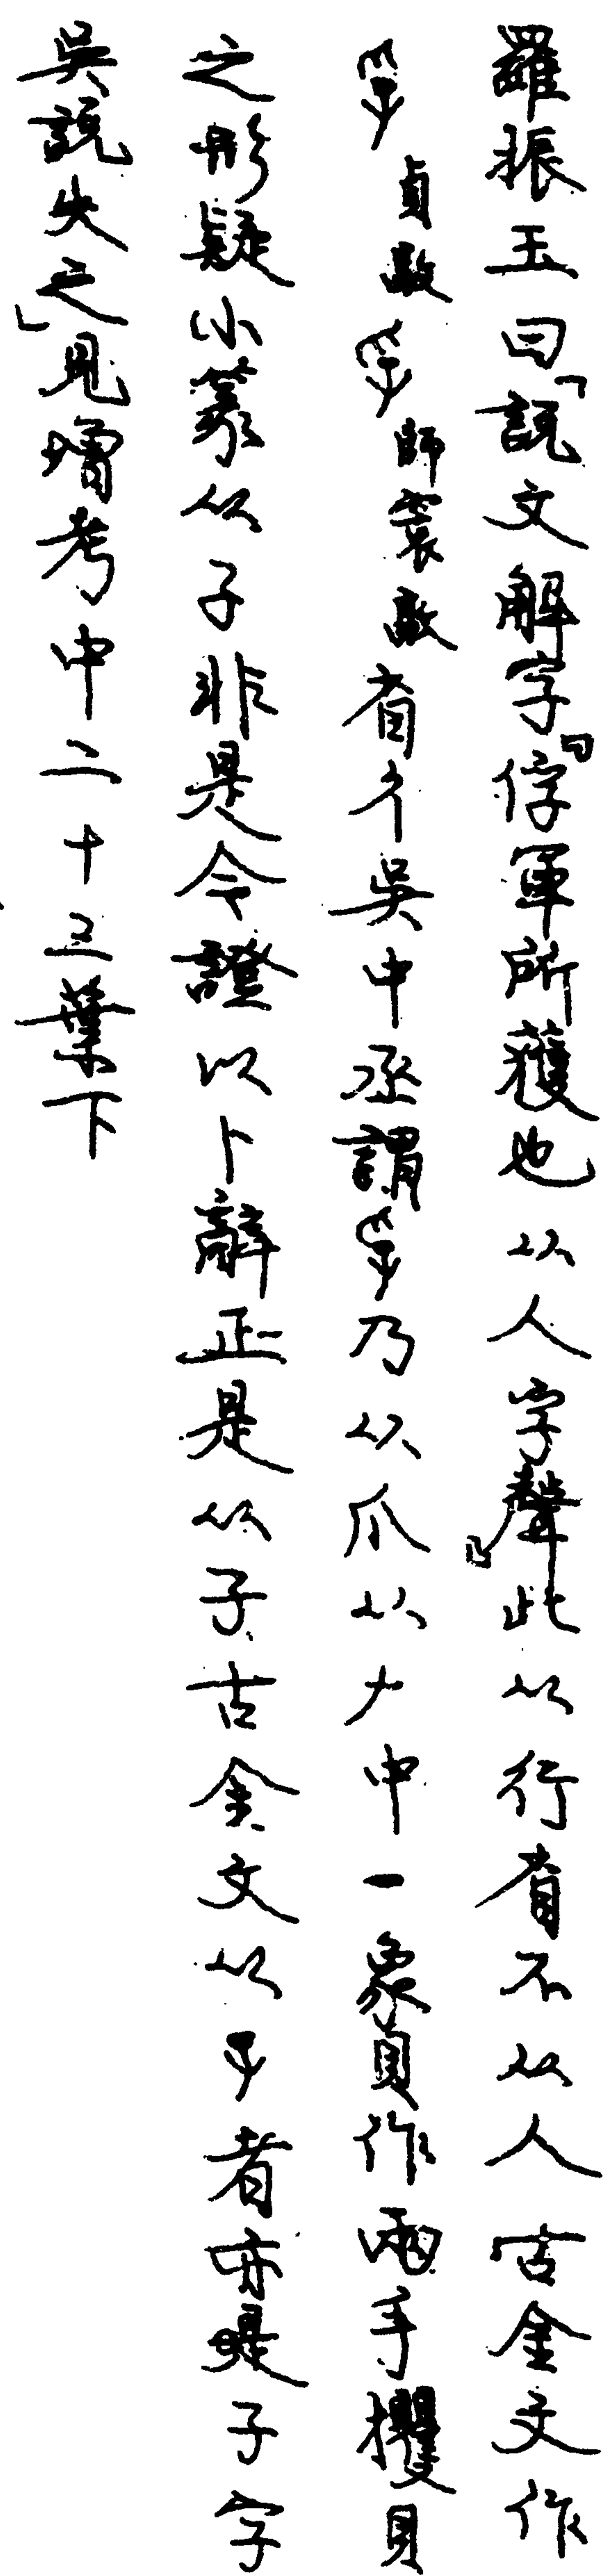 羅振玉曰「說文解字『俘軍所獲也从人孚聲』此从行省不从人古金文作
孚貞𣪘孚師㝨𣪘省彳吳中丞謂孚乃从爪从𠂇中一象貝作兩手攫貝
之形疑小篆从子非是今證以卜辭正是从子古金文从子者亦是子字
吳說失之」見增考中二十三葉下